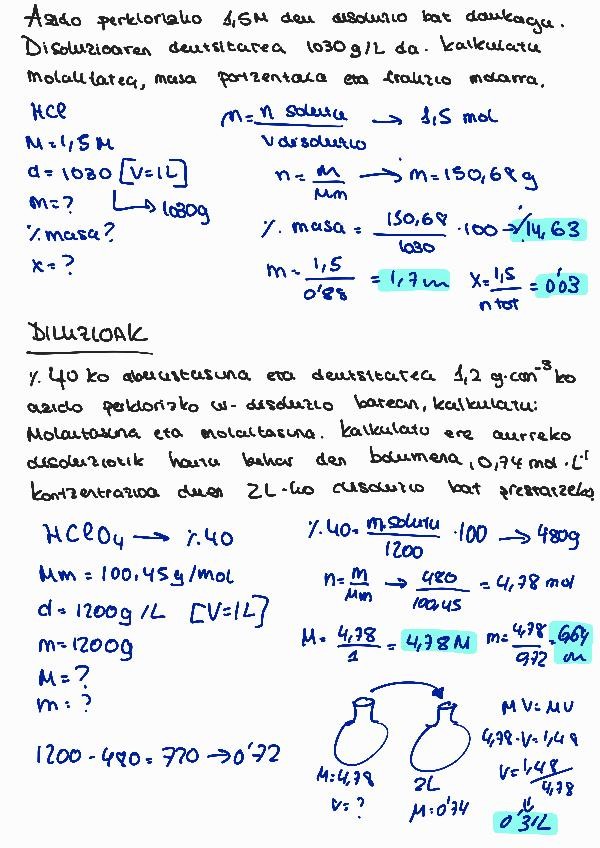 Azido perkloriko 1,5M den disoluzio bat daukagu.
Disoluzioaren dentsitatea 1030 g/L da. Kalkulatu
molalitatea, masa portzentaia eta frakzio molarra.
HCl
M=1,5 M
d = 1030 [V=1L]
m=? → 1030g
% masa?
x=?
M= n solutu / V disoluzio → 1,5 mol
n = m / Mm → m=150,68 g
% masa = 150,68 / 1030 · 100 → % 14,63
m = 1,5 / 0'88 = 1,7 m
X = 1,5 / n tot = 0'03
DILUZIOAK
% 40 ko aberastasuna eta dentsitatea 1,2 g·cm⁻³ ko
azido perkloriko ur-disoluzio batean, kalkulatu:
Molaritasuna eta molalitasuna. Kalkulatu ere aurreko
disoluziotik hartu behar den bolumena, 0,74 mol·L⁻¹
kontzentrazioa duen 2L-ko disoluzio bat prestatzeko.
HClO₄ → % 40
Mm = 100,45 g/mol
d = 1200 g/L [V=1L]
m=1200g
M=?
m=?
1200 - 480 = 720 → 0'72
% 40 = m solutu / 1200 · 100 → 480g
n = m / Mm → 480 / 100,45 = 4,78 mol
M = 4,78 / 1 = 4,78 M
m = 4,78 / 0,72 = 6,64 m
M=4,78
V=?
2L
M=0'74
MV=MV
4,78·V=1,48
V= 1,48 / 4,78
0'31L